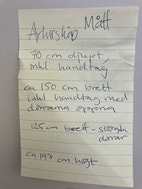 Mått
70 cm djupt,
inkl handtag
ca 150 cm brett
inkl handtag med
dörrarna öppna
125 cm brett - stängda
dörrar
ca 197 cm högt